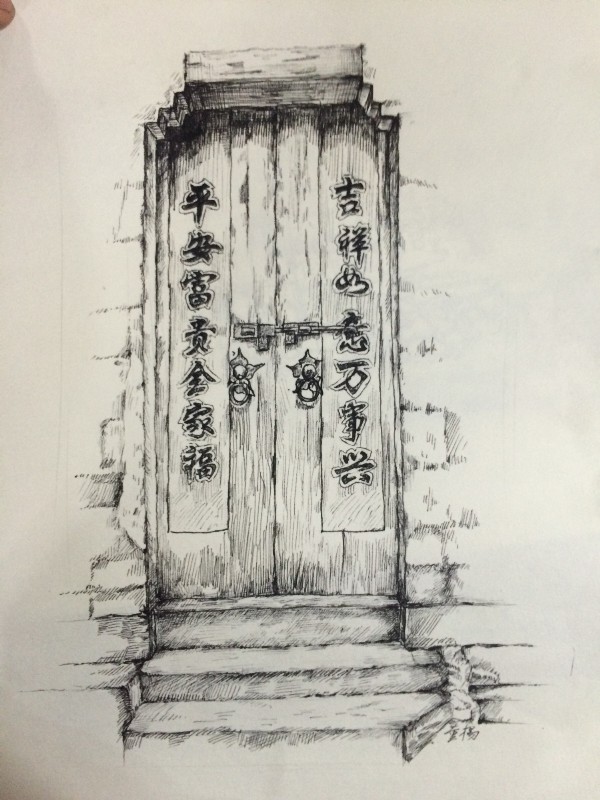 吉祥如意万事兴
平安富贵全家福